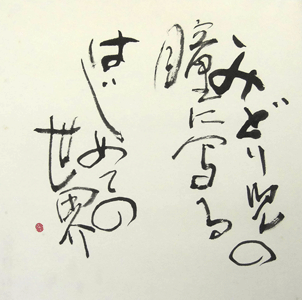 みどり児の
瞳に写る
はじめての
世界